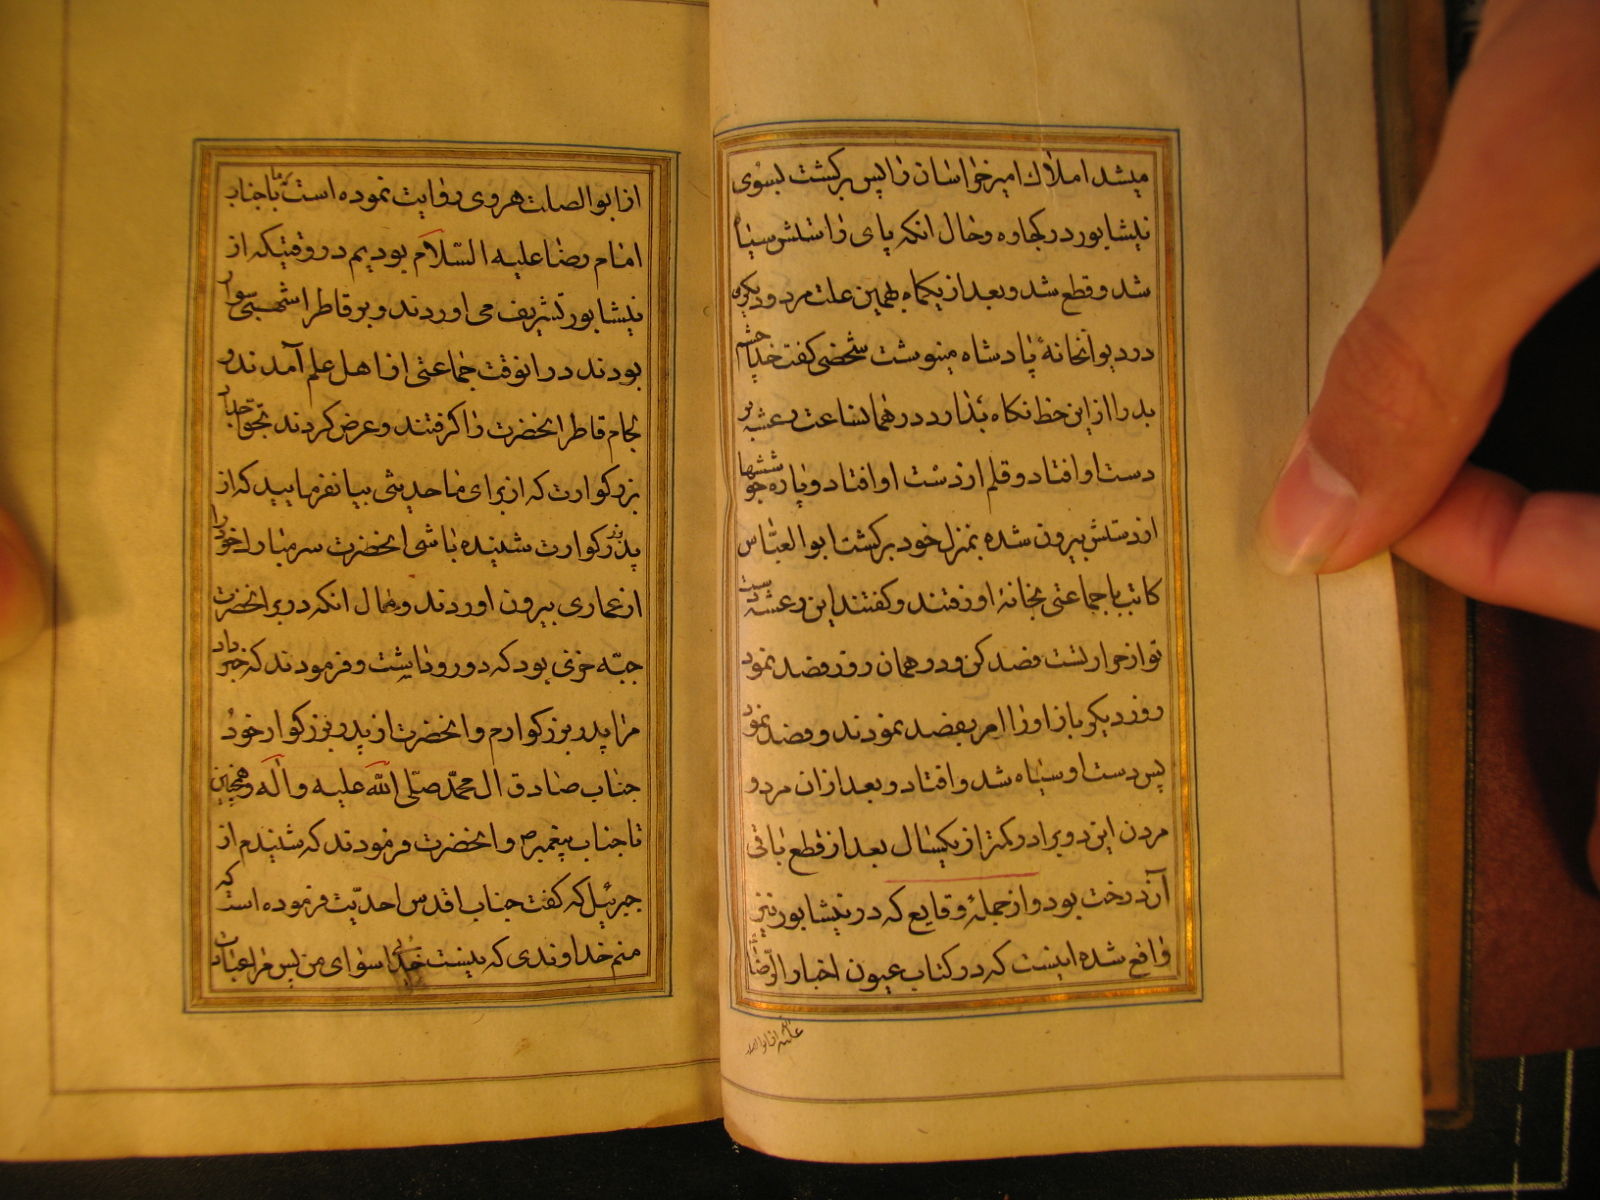 میشد املاک امیر خراسان را پس برکشت بسوی
نیشابور در کجاوه و حال انکه پای راستش سیاه
شد و قطع شد و بعد از یکماه بهمین علت مرد و دیکری
در دیوانخانهٔ پادشاه مینوشت شخصی کفت خدا چشم
بد را از این خط نکاه بدارد در همانساعت رعشه بر
دست او افتاد و قلم از دست او افتاد و پاره جوششها
از دستش بیرون شده بمنزل خود برکشت ابوالعباس
کاتب با جماعتی بخانهٔ او رفتند و کفتند این رعشه دست
تو از حرارتست فصد کن و در همان روز فصد نمود
روز دیکر باز او را امر بفصد نمودند و فصد نمود
پس دست او سیاه شد و افتاد و بعد از ان مرد و
مردن این دو برادر کمتر از یکسال بعد از قطع باقی
آن درخت بود و از جملهٔ وقایع که در نیشابور نیز
واقع شده اینست که در کتاب عیون اخبار الرضا
علیه
از ابوالصلت هروی روایت نموده است که ما با جناب
امام رضا علیه السلام بودیم در وقتیکه از
نیشابور تشریف می اوردند و بر قاطر اشهبی سوار
بودند در انوقت جماعتی از اهل علم آمدند و
لجام قاطر انحضرت را کرفتند و عرض کردند بحق اجداد
بزرکوارت که از برای ما حدیثی بیان فرمایید که از
پدر بزرکوارت شنیده باشی انحضرت سر مبارک خود را
از عماری بیرون اوردند و حال انکه در بر انحضرت
جبّه خزی بود که دو رو داشت و فرمودند که خبر داد
مرا پدر بزرکوارم و انحضرت از پدر بزرکوار خود
جناب صادق ال محمّد صلّی اللّه علیه و اله و همچنین
تا جناب پیغمبر ص و انحضرت فرمودند که شنیدم از
جبرئیل که کفت جناب اقدس احدیّت فرموده است که
منم خداوندی که نیست خدایی سوای من پس مرا عبادت